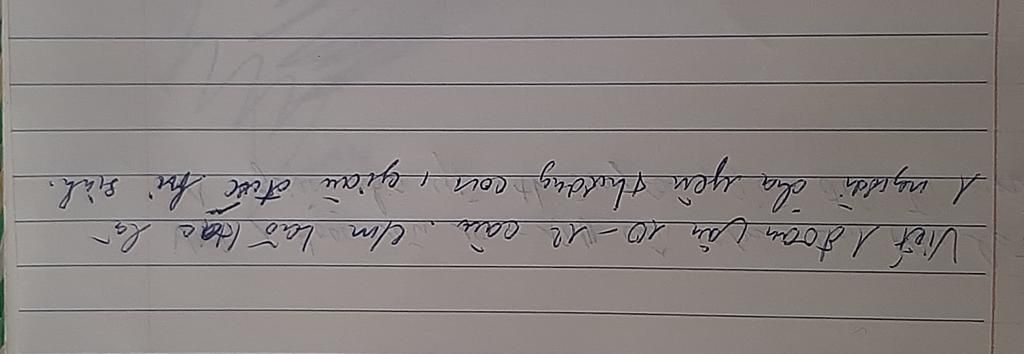 Viết 1 đoạn văn 10 – 12 câu. c/m Lão Hạc là
1 người cha yêu thương con, giàu đức hi sinh.